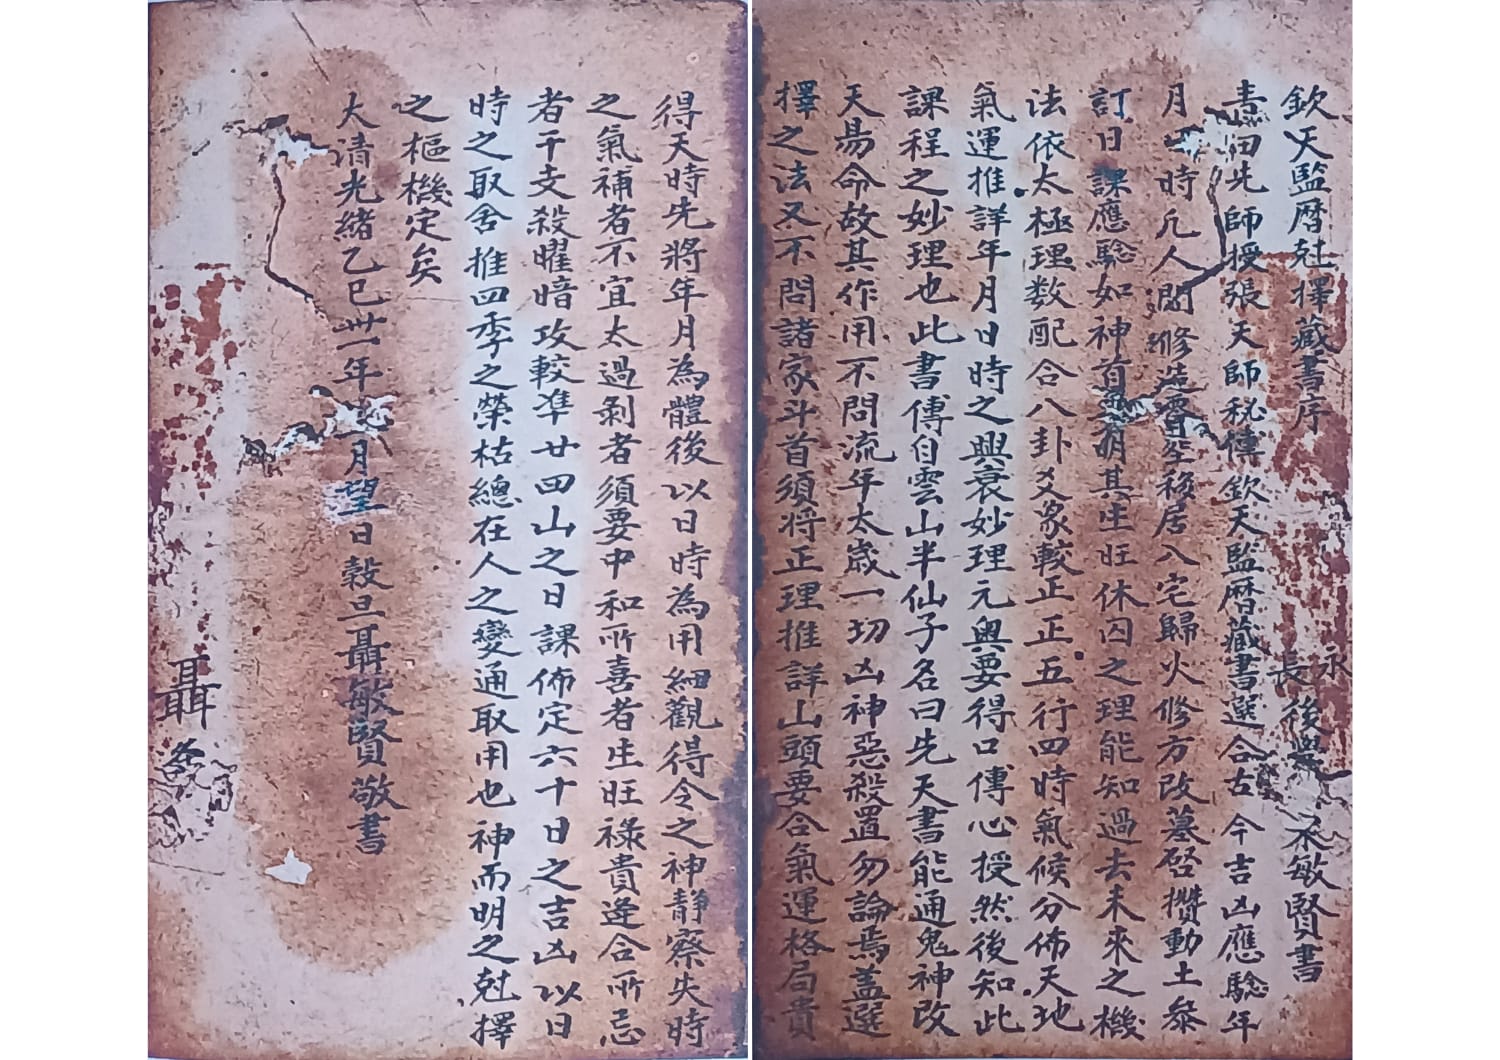 欽天監曆尅擇藏書序
永長後學 敏賢書
先師授張天師秘傳欽天監曆藏書選合古今吉凶應驗年
月 時凡人間修造 移居入宅歸火修方改墓啓攢動土叅
訂日課應驗如神 其生旺休囚之理能知過去未來之機
法依太極理数配合八卦爻象較正正五行四時氣候分佈天地
氣運推詳年月日時之興衰妙理元奥要得口傳心授然後知此
課程之妙理也此書傳自雲山半仙子名曰先天書能通鬼神改
天易命故其作用不問流年太歲一切凶神惡殺置勿論焉盖選
擇之法又不問諸家斗首須将正理推詳山頭要合氣運格局貴
得天時先將年月為體後以日時為用細觀得令之神静察失時
之氣補者不宜太過剝者須要中和所喜者生旺祿貴逢合所忌
者干支殺曜暗攻較準廿四山之日課佈定六十日之吉凶以日
時之取舍推四季之榮枯總在人之變通取用也神而明之尅擇
之樞機定矣
大清光緒乙巳卅一年 月望日穀旦聶敏賢敬書
聶